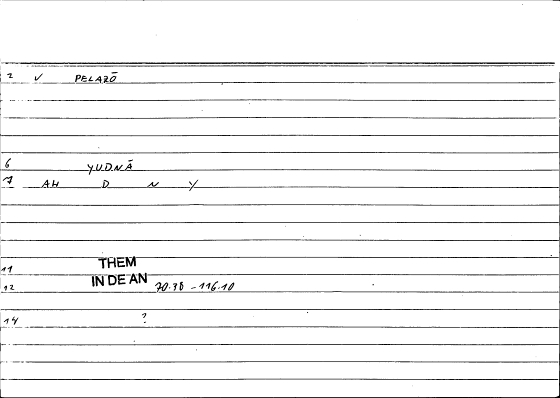 2 ✓ PELAZŌ
6 Y.U.D.N.Ā
7 AH D N Y
11 THEM
12 IN DE AN 70.38 - 116.10
14 ?